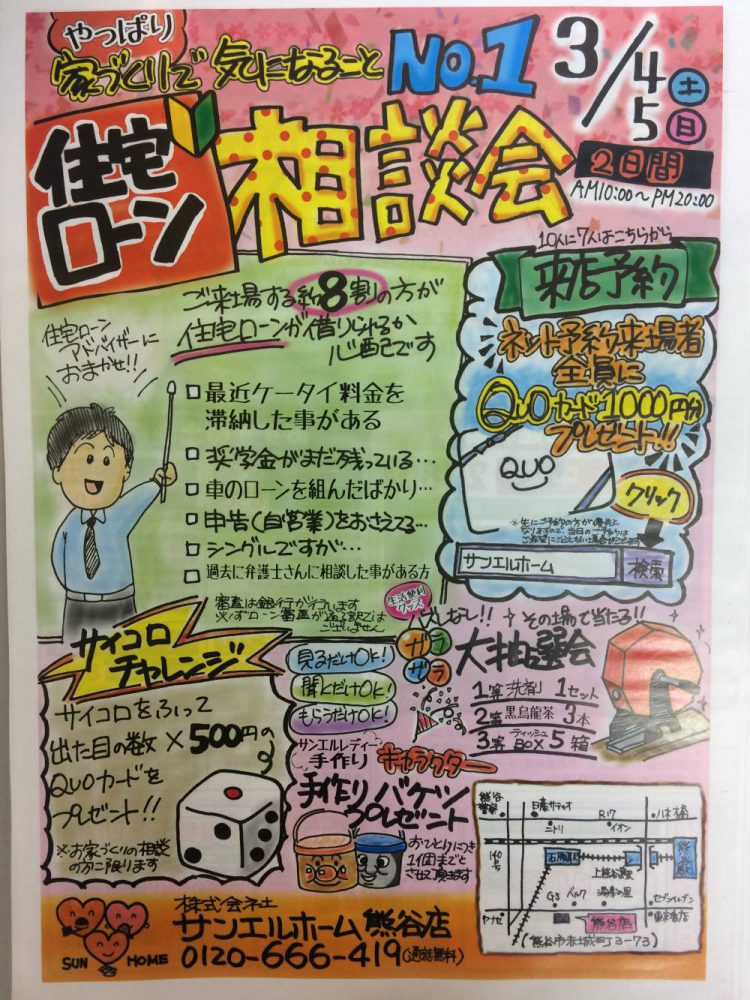 やっぱり
家づくりで気になること No.1
住宅
ローン
相談会
3/4土
5日
2日間
AM10:00～PM20:00
10人に7人はこちらから
来店予約
ネット予約来場者
全員に
QUOカード1000円分
プレゼント!!
QUO
クリック
サンエルホーム 検索
ご来場する約8割の方が
住宅ローンが借りられるか
心配です
住宅ローン
アドバイザーに
おまかせ!!
□最近ケータイ料金を
滞納した事がある
□奨学金がまだ残っている…
□車のローンを組んだばかり…
□申告(自営業)をおさえてる…
□シングルですが…
□過去に弁護士さんに相談した事がある方
審査は銀行が行います
生活便利
グッズ
ハズレなし!! その場で当たる!!
ガラ
ガラ
大抽選会
1等 洗剤 1セット
2等 黒烏龍茶 3本
3等 ティッシュBOX 5箱
サイコロ
チャレンジ
サイコロをふって
出た目の数×500円の
QUOカードを
プレゼント!!
※お家づくりの相談
の方に限ります
見るだけOK!
聞くだけOK!
もらうだけOK!
サンエルレディー
手作り キャラクター
手作りバケツ
プレゼント
おひとりにつき
1個までと
させて頂きます
熊谷
警察
日産サティオ
ニトリ
R17
イオン
八木橋
140
号
石原駅
上熊谷駅
熊谷駅
GS
ベルク
湯楽の里
セブンイレブン
ヤナセ
熊谷店
(熊谷市赤城町3-73)
SUN HOME
株式会社
サンエルホーム 熊谷店
0120-666-419(通話無料)